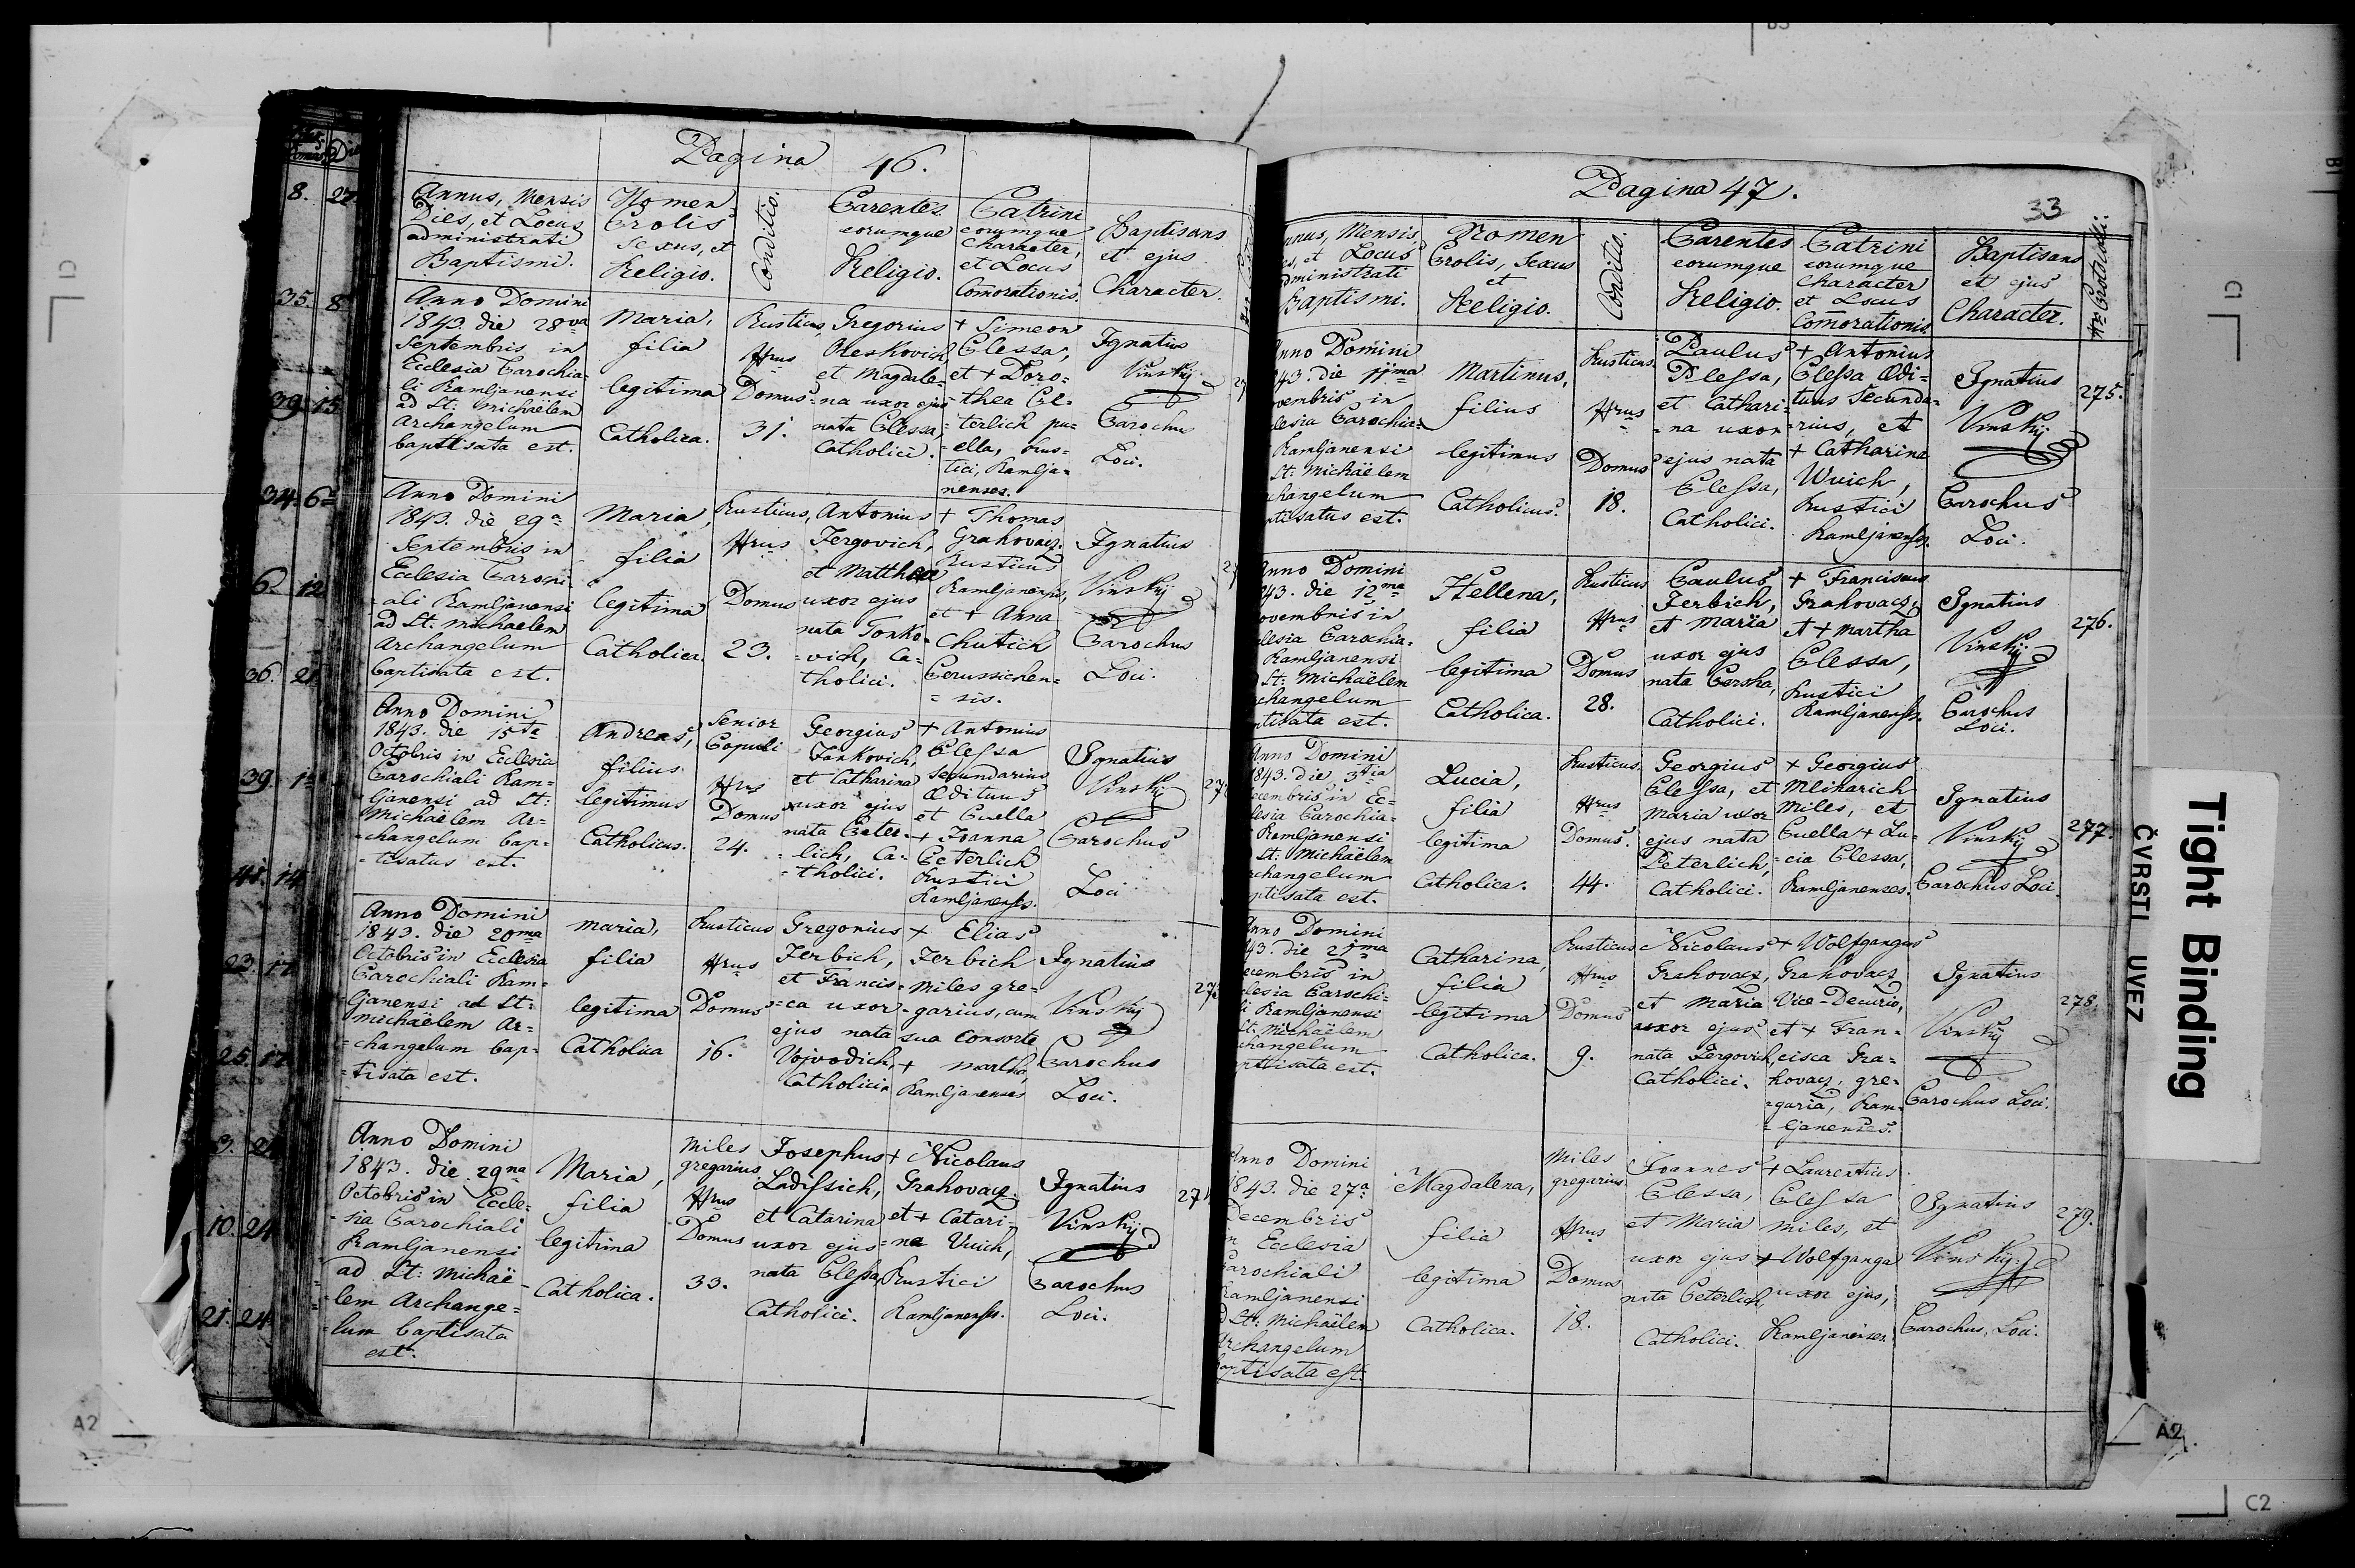 Pagina 46.
Annus, Mensis
Dies, et Locus
administrati
Baptismi.
Nomen
Prolis
Sexus, et
Religio.
Conditio.
Parentes
eorumque
Religio.
Patrini
eorumque
Character,
et Locus
Comorationis.
Baptisans
et ejus
Character.
Anno Domini
1843. die 28va
Septembris in
Ecclesia Parochia-
li Ramljanensi
ad St: Michaëlem
Archangelum
baptisata est.
Maria,
filia
legitima
Catholica.
Rusticus
Nrus
Domus
31.
Gregorius
Oreskovich
et Magdale-
=na uxor ejus
nata Plessa,
Catholici.
+ Simeon
Plessa,
et + Doro=
=thea Pe=
terlich pu=
=ella, Rus=
tici, Ramlja=
nenses.
Ignatius
Vinskij
Parochus
Loci.
Anno Domini
1843. die 29a
Septembris in
Ecclesia Parochi
=ali Ramljanensi
ad St: Michaelem
Archangelum
baptisata est.
Maria,
filia
legitima
Catholica.
Rusticus,
Nrus
Domus
23.
Antonius
Jergovich,
et Matthaea
uxor ejus
nata Tonko=
=vich, Ca=
tholici.
+ Thomas
Grahovacz.
Rusticus
Ramljanensis,
et + Anna
Chutich
Perussichen=
=sis.
Ignatius
Vinskij
Parochus
Loci.
Anno Domini
1843. die 15ta
Octobris in Ecclesia
Parochiali Ram=
ljanensi ad St:
Michaëlem Ar=
=changelum bap=
=tisatus est.
Andreas,
filius
legitimus
Catholicus.
Senior
Populi
Nrus
Domus
24.
Georgius
Jankovich,
et Catharina
uxor ejus
nata Peter=
=lich, Ca=
=tholici.
+ Antonius
Plessa
Secundarius
Ædituus
et Puella
+ Joanna
Peterlich
Rustici
Ramljanenses.
Ignatius
Vinskij
Parochus
Loci
Anno Domini
1843. die 20ma
Octobris in Ecclesia
Parochiali Ram=
ljanensi ad St:
Michaëlem Ar=
=changelum bap=
=tisata est.
Maria,
filia
legitima
Catholica
Rusticus
Nrus
Domus
16.
Gregorius
Jerbich,
et Francis=
=ca uxor
ejus nata
Vojvodich,
Catholici.
+ Elias
Jerbich
Miles gre=
=garius, cum
sua Consorte
+ Martha,
Ramljanenses
Ignatius
Vinskij
Parochus
Loci.
Anno Domini
1843. die 29na
Octobris in Eccle=
sia Parochiali
Ramljanensi
ad St: Michaë=
lem Archange=
lum baptisata
est.
Maria,
filia
legitima
Catholica.
Miles
gregarius
Nrus
Domus
33.
Josephus
Ladissich,
et Catarina
uxor ejus
nata Plessa
Catholici.
+ Nicolaus
Grahovacz
et + Catari=
=na Vuich,
Rustici
Ramljanenses.
Ignatius
Vinskij
Parochus
Loci.
Pagina 47.
33
Mensis
et Locus
Baptismi.
Nomen
Prolis, Sexus
et
Religio.
Conditio.
Parentes
eorumque
Religio.
Patrini
eorumque
Character
et Locus
Comorationis.
Baptisans
et ejus
Character.
Domini
die 11ma
in
Parochia=
Ramljanensi
St: Michäelem
est.
Martinus,
filius
legitimus
Catholicus.
Rusticus.
Nrus
Domus
18.
Paulus
Plessa,
et Cathari=
=na uxor
ejus nata
Plessa,
Catholici.
+ Antonius
Plessa Ædi=
tuus Secunda=
=rius, et
+ Catharina
Wuich,
Rustici
Ramljanenses.
Ignatius
Vinskij
Parochus
Loci.
275.
Anno Domini
die 12ma
in
Parochia=
Ramljanensi
St: Michaëlem
est.
Hellena,
filia
legitima
Catholica.
Rusticus
Nrus
Domus
28.
Paulus
Jerbich,
et Maria
uxor ejus
nata Persha,
Catholici.
+ Franciscus
Grahovacz,
et + Martha
Plessa,
Rustici
Ramljanenses.
Ignatius
Vinskij
Parochus
Loci.
276.
Anno Domini
1843. die 3tia
in Ec=
Parochia=
Ramljanensi
St: Michaëlem
est.
Lucia,
filia
legitima
Catholica.
Rusticus
Nrus
Domus.
44.
Georgius
Plessa, et
Maria uxor
ejus nata
Peterlich,
Catholici.
+ Georgius
Mlinarich
Miles, et
Puella + Lu=
=cia Plessa,
Ramljanenses.
Ignatius
Vinskij
Parochus Loci.
277.
Anno Domini
die 21ma
in
Parochi=
Ramljanensi
St: Michaëlem
est.
Catharina,
filia
legitima
Catholica.
Rusticus
Nrus
Domus
9.
Nicolaus
Grahovacz,
et Maria
uxor ejus
nata Jergovich,
Catholici.
+ Wolfgangus
Grahovacz
Vice-Decurio,
et + Fran=
cisca Gra=
hovacz, gre=
=garia, Ram=
=ljanenses.
Ignatius
Vinskij
Parochus Loci.
278.
Anno Domini
1843. die 27a
Decembris
Ecclesia
Parochiali
Ramljanensi
St: Michaëlem
Archangelum
baptisata est.
Magdalena,
filia
legitima
Catholica.
Miles
gregarius
Nrus
Domus
18.
Joannes
Plessa,
et Maria
uxor ejus
nata Peterlich,
Catholici.
+ Laurentius
Plessa
Miles, et
+ Wolfganga
uxor ejus,
Ramljanenses.
Ignatius
Vinskij
Parochus, Loci.
279.
Tight Binding
ČVRSTI UVEZ
A2
A2
C1
C2